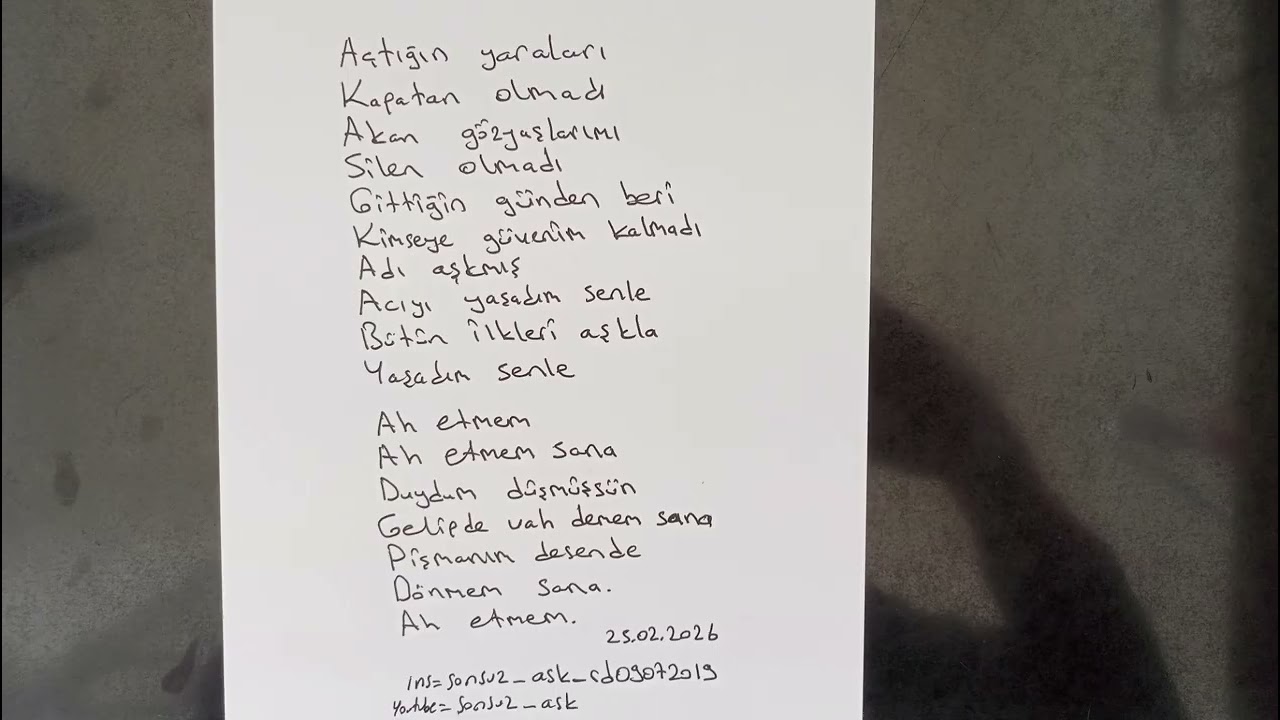 Açtığın yaraları
Kapatan olmadı
Akan gözyaşlarımı
Silen olmadı
Gittiğin günden beri
Kimseye güvenim kalmadı
Adı aşkmış
Acıyı yaşadım senle
Bütün ilkleri aşkla
Yaşadım senle
Ah etmem
Ah etmem sana
Duydum düşmüşsün
Gelipde vah demem sana
Pişmanım desende
Dönmem sana.
Ah etmem.
25.02.2026
ins=sonsuz_ask_cd09072019
Youtube=sonsuz_ask